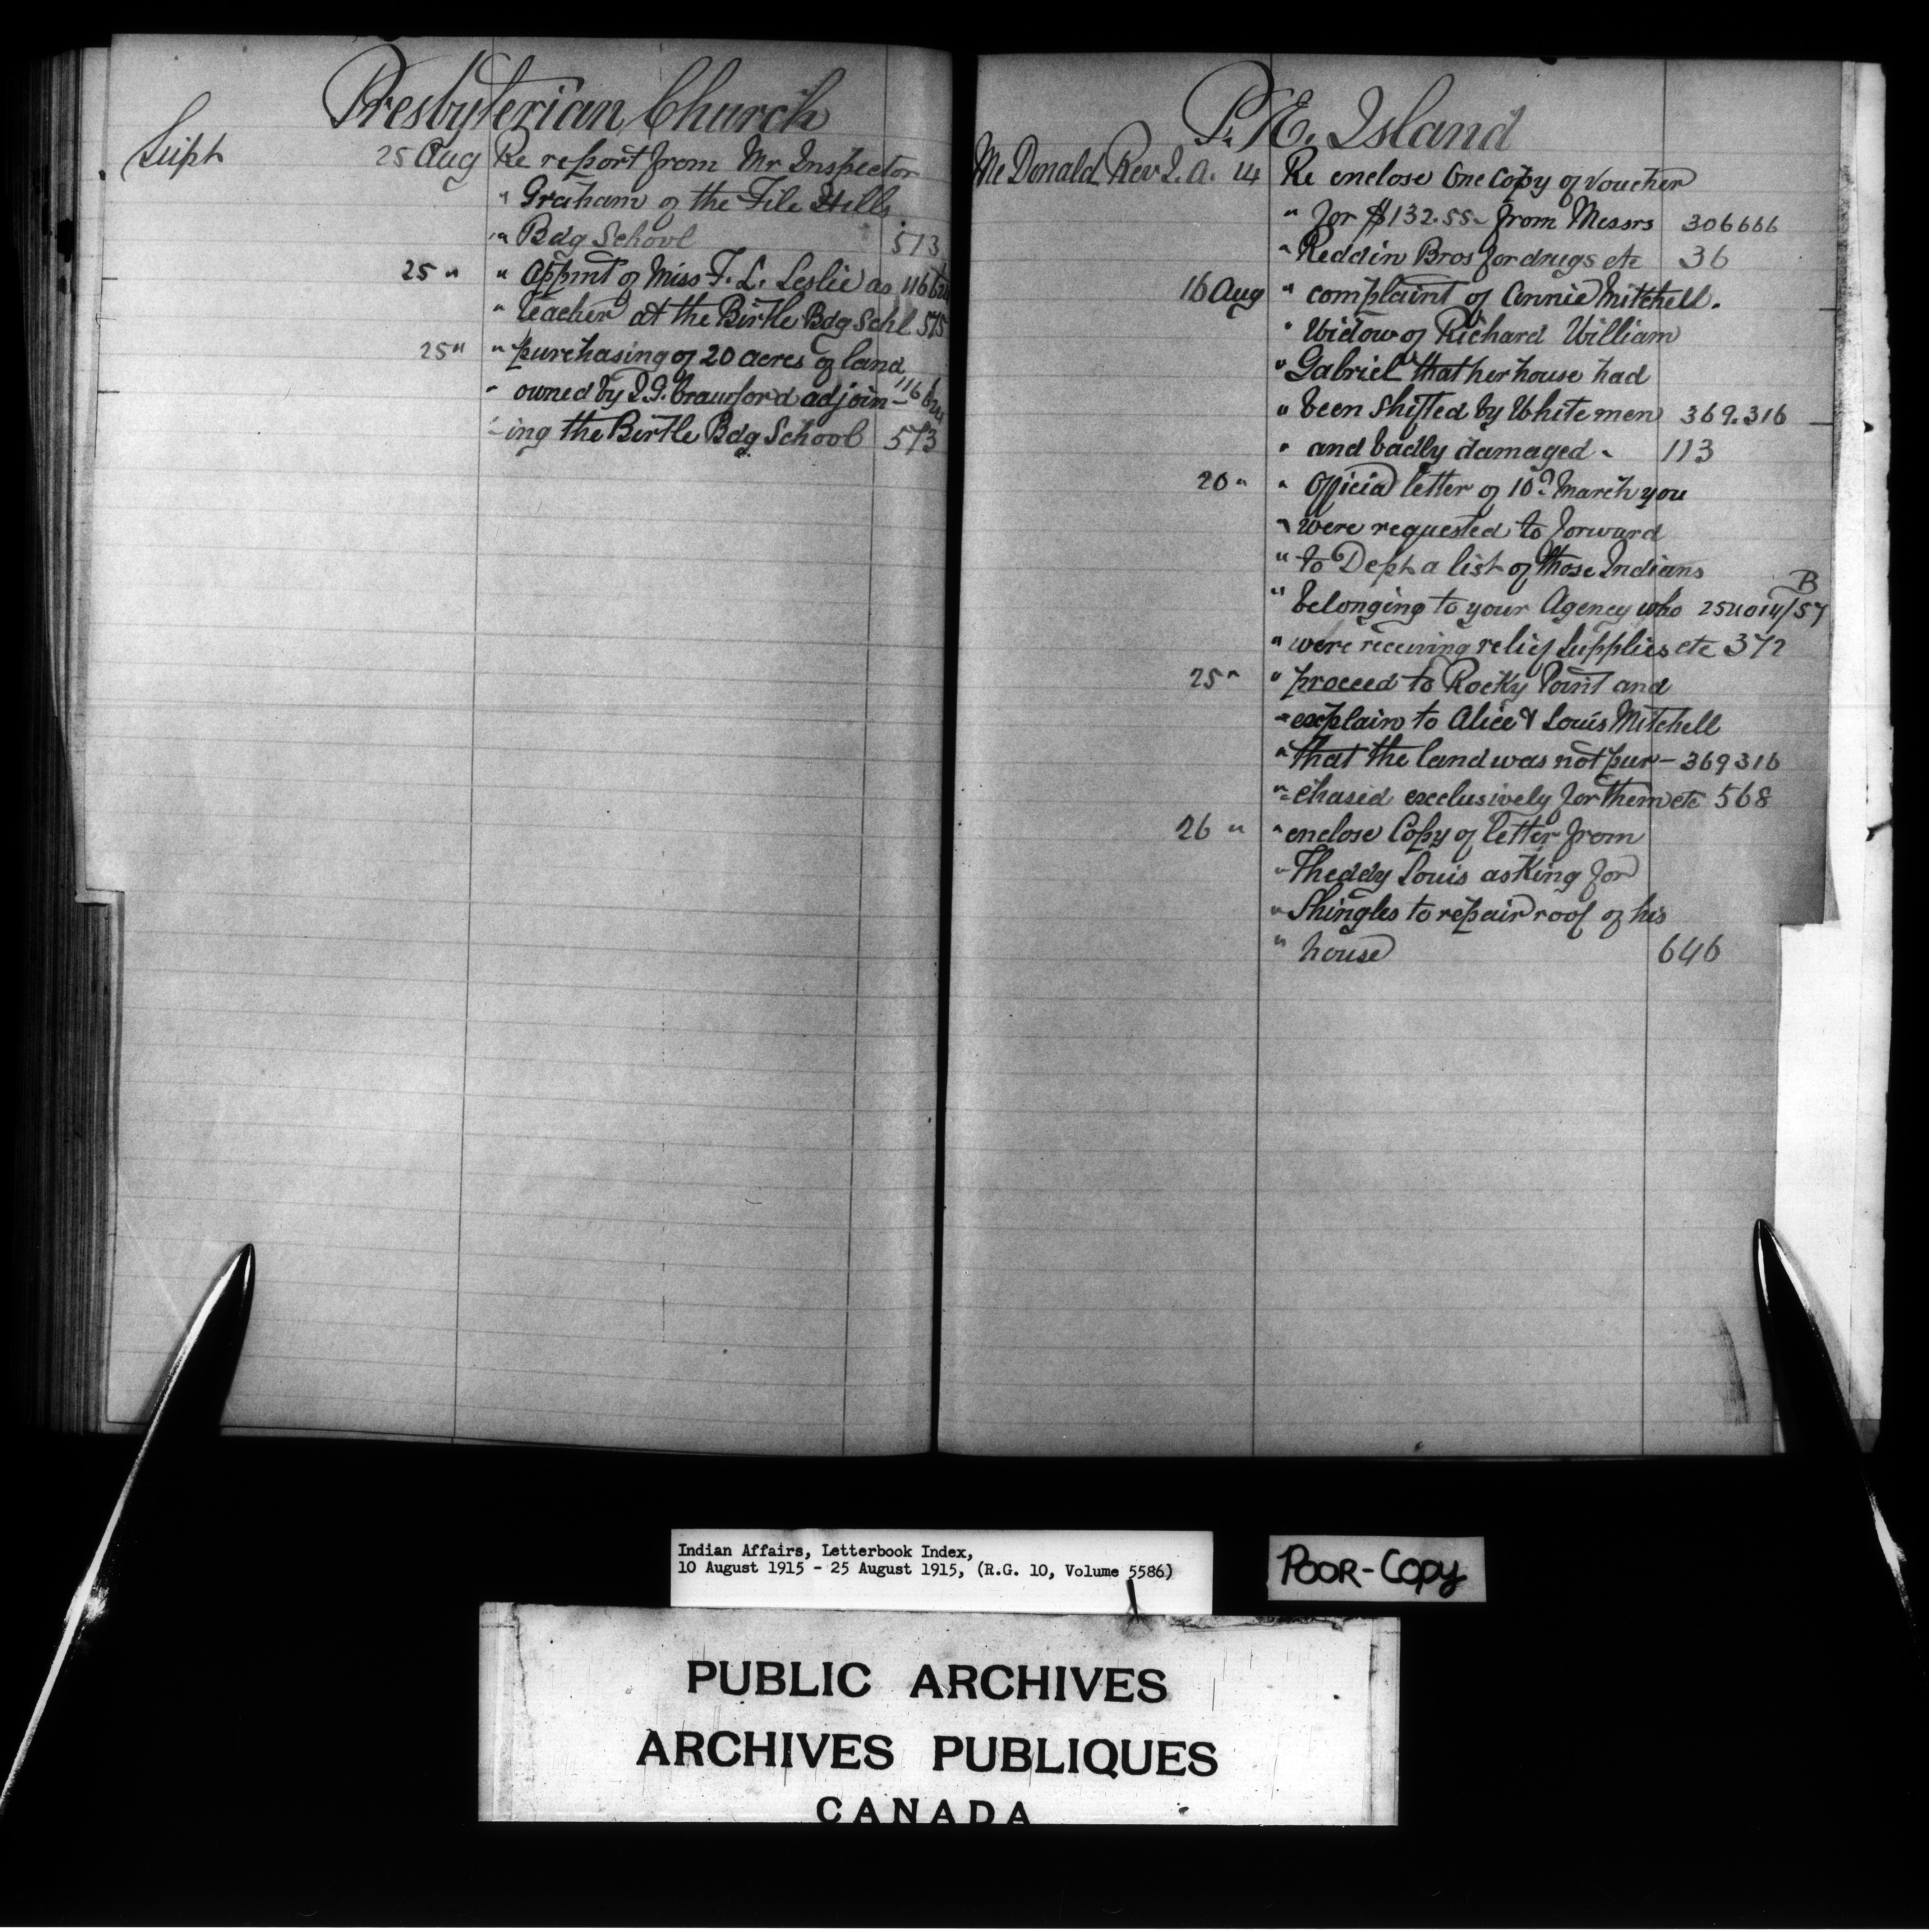 Presbyterian Church
Supt 25 Aug Re report from Mr Inspector
" Graham of the File Hills
" Bdg School 573
25 " " Appmt of Miss F. L. Leslie as 116 624
" teacher at the Birtle Bdg Schl 575
25 " " purchasing of 20 acres of land
" owned by J.G. Crawford adjoin- 116 624
-ing the Birtle Bdg School 573
P. E. Island
McDonald Rev J. A. 14 Re enclose One Copy of Voucher
" for $132.55 - from Messrs 306666
" Reddin Bros for drugs etc 36
16 Aug " complaint of Annie Mitchell.
" Widow of Richard William
" Gabriel that her house had
" been shifted by White men 369.316
" and badly damaged - 113
20 " " Official letter of 10th March you
" were requested to forward
" to Dept a list of those Indians
" belonging to your Agency who 254014/57 B
" were receiving relief supplies etc 372
25 " " proceed to Rocky Point and
" explain to Alice & Louis Mitchell
" that the land was not pur- 369316
" -chased exclusively for them etc 568
26 " " enclose Copy of letter from
" Theddy Louis asking for
" Shingles to repair roof of his
" house 646
Indian Affairs, Letterbook Index,
10 August 1915 - 25 August 1915, (R.G. 10, Volume 5586)
POOR-COPY
PUBLIC ARCHIVES
ARCHIVES PUBLIQUES
CANADA